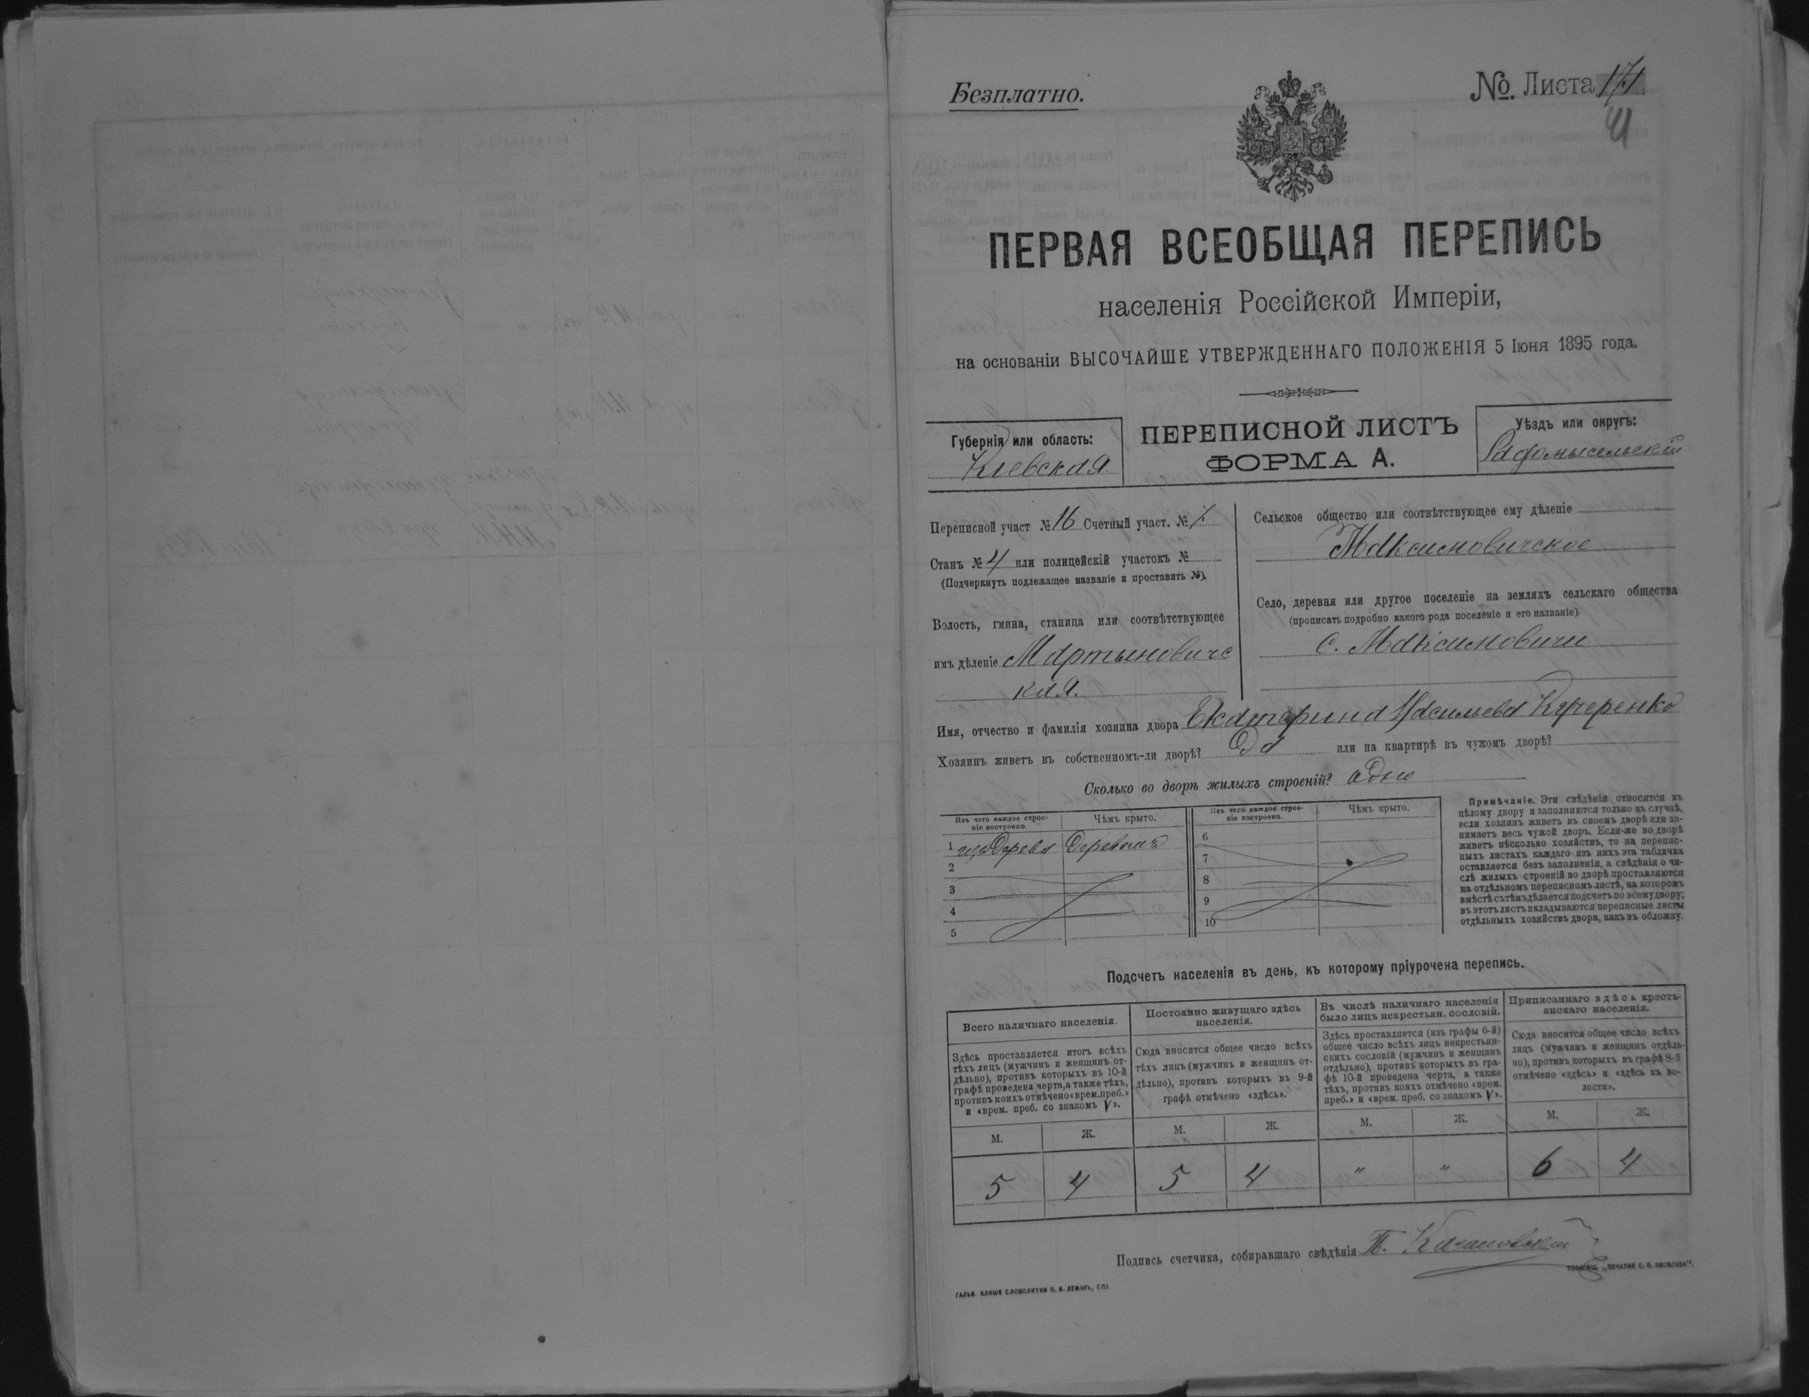 Безплатно.
№. Листа 171
41
ПЕРВАЯ ВСЕОБЩАЯ ПЕРЕПИСЬ
населенія Россійской Имперіи,
на основаніи ВЫСОЧАЙШЕ УТВЕРЖДЕННАГО ПОЛОЖЕНІЯ 5 Іюня 1895 года.
Губернія или область:
Кіевская
ПЕРЕПИСНОЙ ЛИСТЪ
ФОРМА А.
Уѣздъ или округъ:
Радомысельскій
Переписной участ № 16 Счетный участ. №
Станъ № 4 или полицейскій участокъ №
(Подчеркнуть подлежащее названіе и проставить №).
Волость, гмина, станица или соотвѣтствующее
имъ дѣленіе Мартыновичс
кая.
Сельское общество или соотвѣтствующее ему дѣленіе
Максимовичское
Село, деревня или другое поселеніе на земляхъ сельскаго общества
(прописать подробно какого рода поселеніе и его названіе)
с. Максимовичи
Имя, отчество и фамилія хозяина двора Екатерина Васильева Кучеренко
Хозяинъ живетъ въ собственномъ-ли дворѣ? Да или на квартирѣ въ чужомъ дворѣ?
Сколько во дворѣ жилыхъ строеній? адно
Изъ чего каждое строе-
ніе построено.
Чѣмъ крыто.
1 изъ Дерева Деревомъ
2
3
4
5
Изъ чего каждое строе-
ніе построено.
Чѣмъ крыто.
6
7
8
9
10
Примѣчаніе. Эти свѣдѣнія относятся къ
цѣлому двору и заполняются только въ случаѣ,
если хозяинъ живетъ въ своемъ дворѣ или за-
нимаетъ весь чужой дворъ. Если-же во дворѣ
живетъ нѣсколько хозяйствъ, то на перепис-
ныхъ листахъ каждаго изъ нихъ эта табличка
оставляется безъ заполненія, а свѣдѣнія о чи-
слѣ жилыхъ строеній во дворѣ проставляются
на отдѣльномъ переписномъ листѣ, на которомъ
вмѣстѣ съ тѣмъ дѣлается подсчетъ по всему двору;
въ этотъ листъ вкладываются переписные листы
отдѣльныхъ хозяйствъ двора, какъ въ обложку.
Подсчетъ населенія въ день, къ которому пріурочена перепись.
Всего наличнаго населенія.
Здѣсь проставляется итогъ всѣхъ
тѣхъ лицъ (мужчинъ и женщинъ от-
дѣльно), противъ которыхъ въ 10-й
графѣ проведена черта, а также тѣхъ,
противъ коихъ отмѣчено «врем. преб.»
и «врем. преб. со знакомъ V».
М. Ж.
5 4
Постоянно живущаго здѣсь
населенія.
Сюда вносится общее число всѣхъ
тѣхъ лицъ (мужчинъ и женщинъ от-
дѣльно), противъ которыхъ въ 9-й
графѣ отмѣчено «здѣсь».
М. Ж.
5 4
Въ числѣ наличнаго населенія
было лицъ некрестьян. сословій.
Здѣсь проставляется (изъ графы 6-й)
общее число всѣхъ лицъ некрестьян-
скихъ сословій (мужчинъ и женщинъ
отдѣльно), противъ которыхъ въ гра-
фѣ 10-й проведена черта, а также
тѣхъ, противъ коихъ отмѣчено «врем.
преб.» и «врем. преб. со знакомъ V».
М. Ж.
" "
Приписаннаго здѣсь кресть-
янскаго населенія.
Сюда вносится общее число всѣхъ
лицъ (мужчинъ и женщинъ отдѣль-
но), противъ которыхъ въ графѣ 8-й
отмѣчено «здѣсь» и «здѣсь въ во-
лости».
М. Ж.
6 4
Подпись счетчика, собиравшаго свѣдѣнія
ГАЛЬВ. КЛИШЕ СЛОВОЛИТНИ О. И. ЛЕМАНЪ, СПБ.
ТОВАРИЩ. „ПЕЧАТНЯ С. П. ЯКОВЛЕВА".